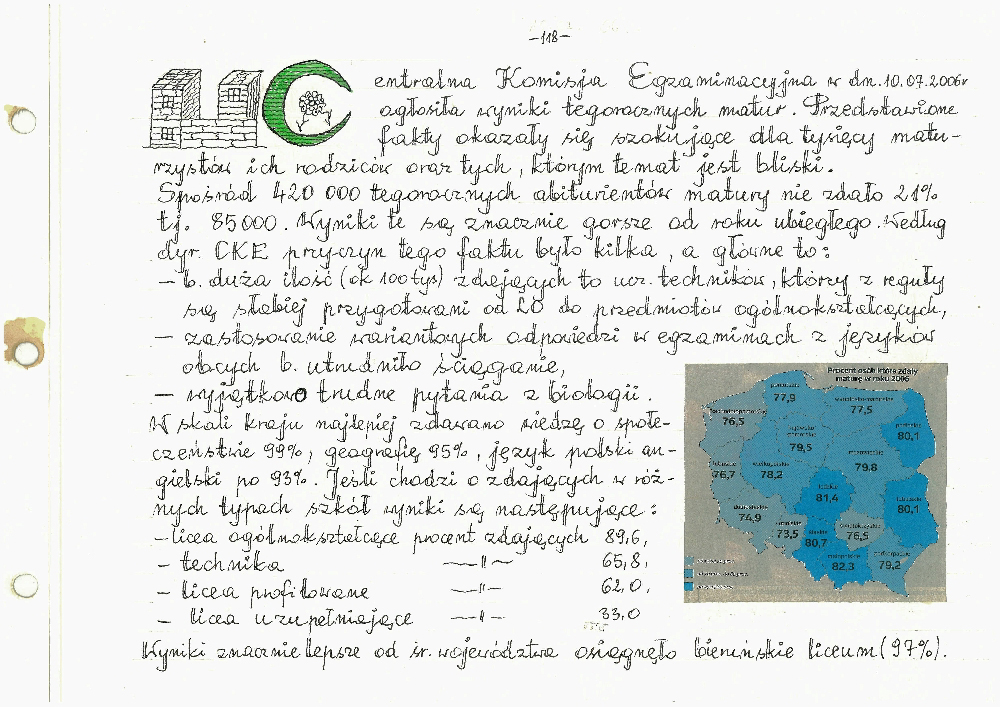 -118-
C
entralna Komisja Egzaminacyjna w dn. 10.07.2006r
ogłosiła wyniki tegorocznych matur. Przedstawione
fakty okazały się szokujące dla tysięcy matu-
rzystów ich rodziców oraz tych, którym temat jest bliski.
Spośród 420 000 tegorocznych abiturientów matury nie zdało 21%
tj. 85000. Wyniki te są znacznie gorsze od roku ubiegłego. Według
dyr. CKE przyczyn tego faktu było kilka, a główne to:
- b. duża ilość (ok 100 tys) zdających to ucz. techników, którzy z reguły
są słabiej przygotowani od LO do przedmiotów ogólnokształcących,
- zastosowanie wariantowych odpowiedzi w egzaminach z języków
obcych b. utrudniło ściąganie,
- wyjątkowo trudne pytania z biologii.
W skali kraju najlepiej zdawano wiedzę o społe-
czeństwie 99%, geografię 95%, język polski an-
gielski po 93%. Jeśli chodzi o zdających w róż-
nych typach szkół wyniki są następujące:
- licea ogólnokształcące procent zdających 89,6,
- technika —"— 65,8,
- licea profilowane —"— 62,0,
- licea uzupełniające —"— 33,0
Wyniki znacznie lepsze od śr. województwa osiągnęło bieruńskie liceum (97%).
Procent osób, które zdały
maturę w roku 2006
pomorskie
77,9
warmińsko-mazurskie
77,5
zachodniopomorskie
76,5
podlaskie
80,1
kujawsko-
pomorskie
79,5
mazowieckie
79,8
lubuskie
76,7
wielkopolskie
78,2
łódzkie
81,4
lubelskie
80,1
dolnośląskie
74,9
opolskie
73,5
śląskie
80,7
świętokrzyskie
76,5
małopolskie
82,3
podkarpackie
79,2